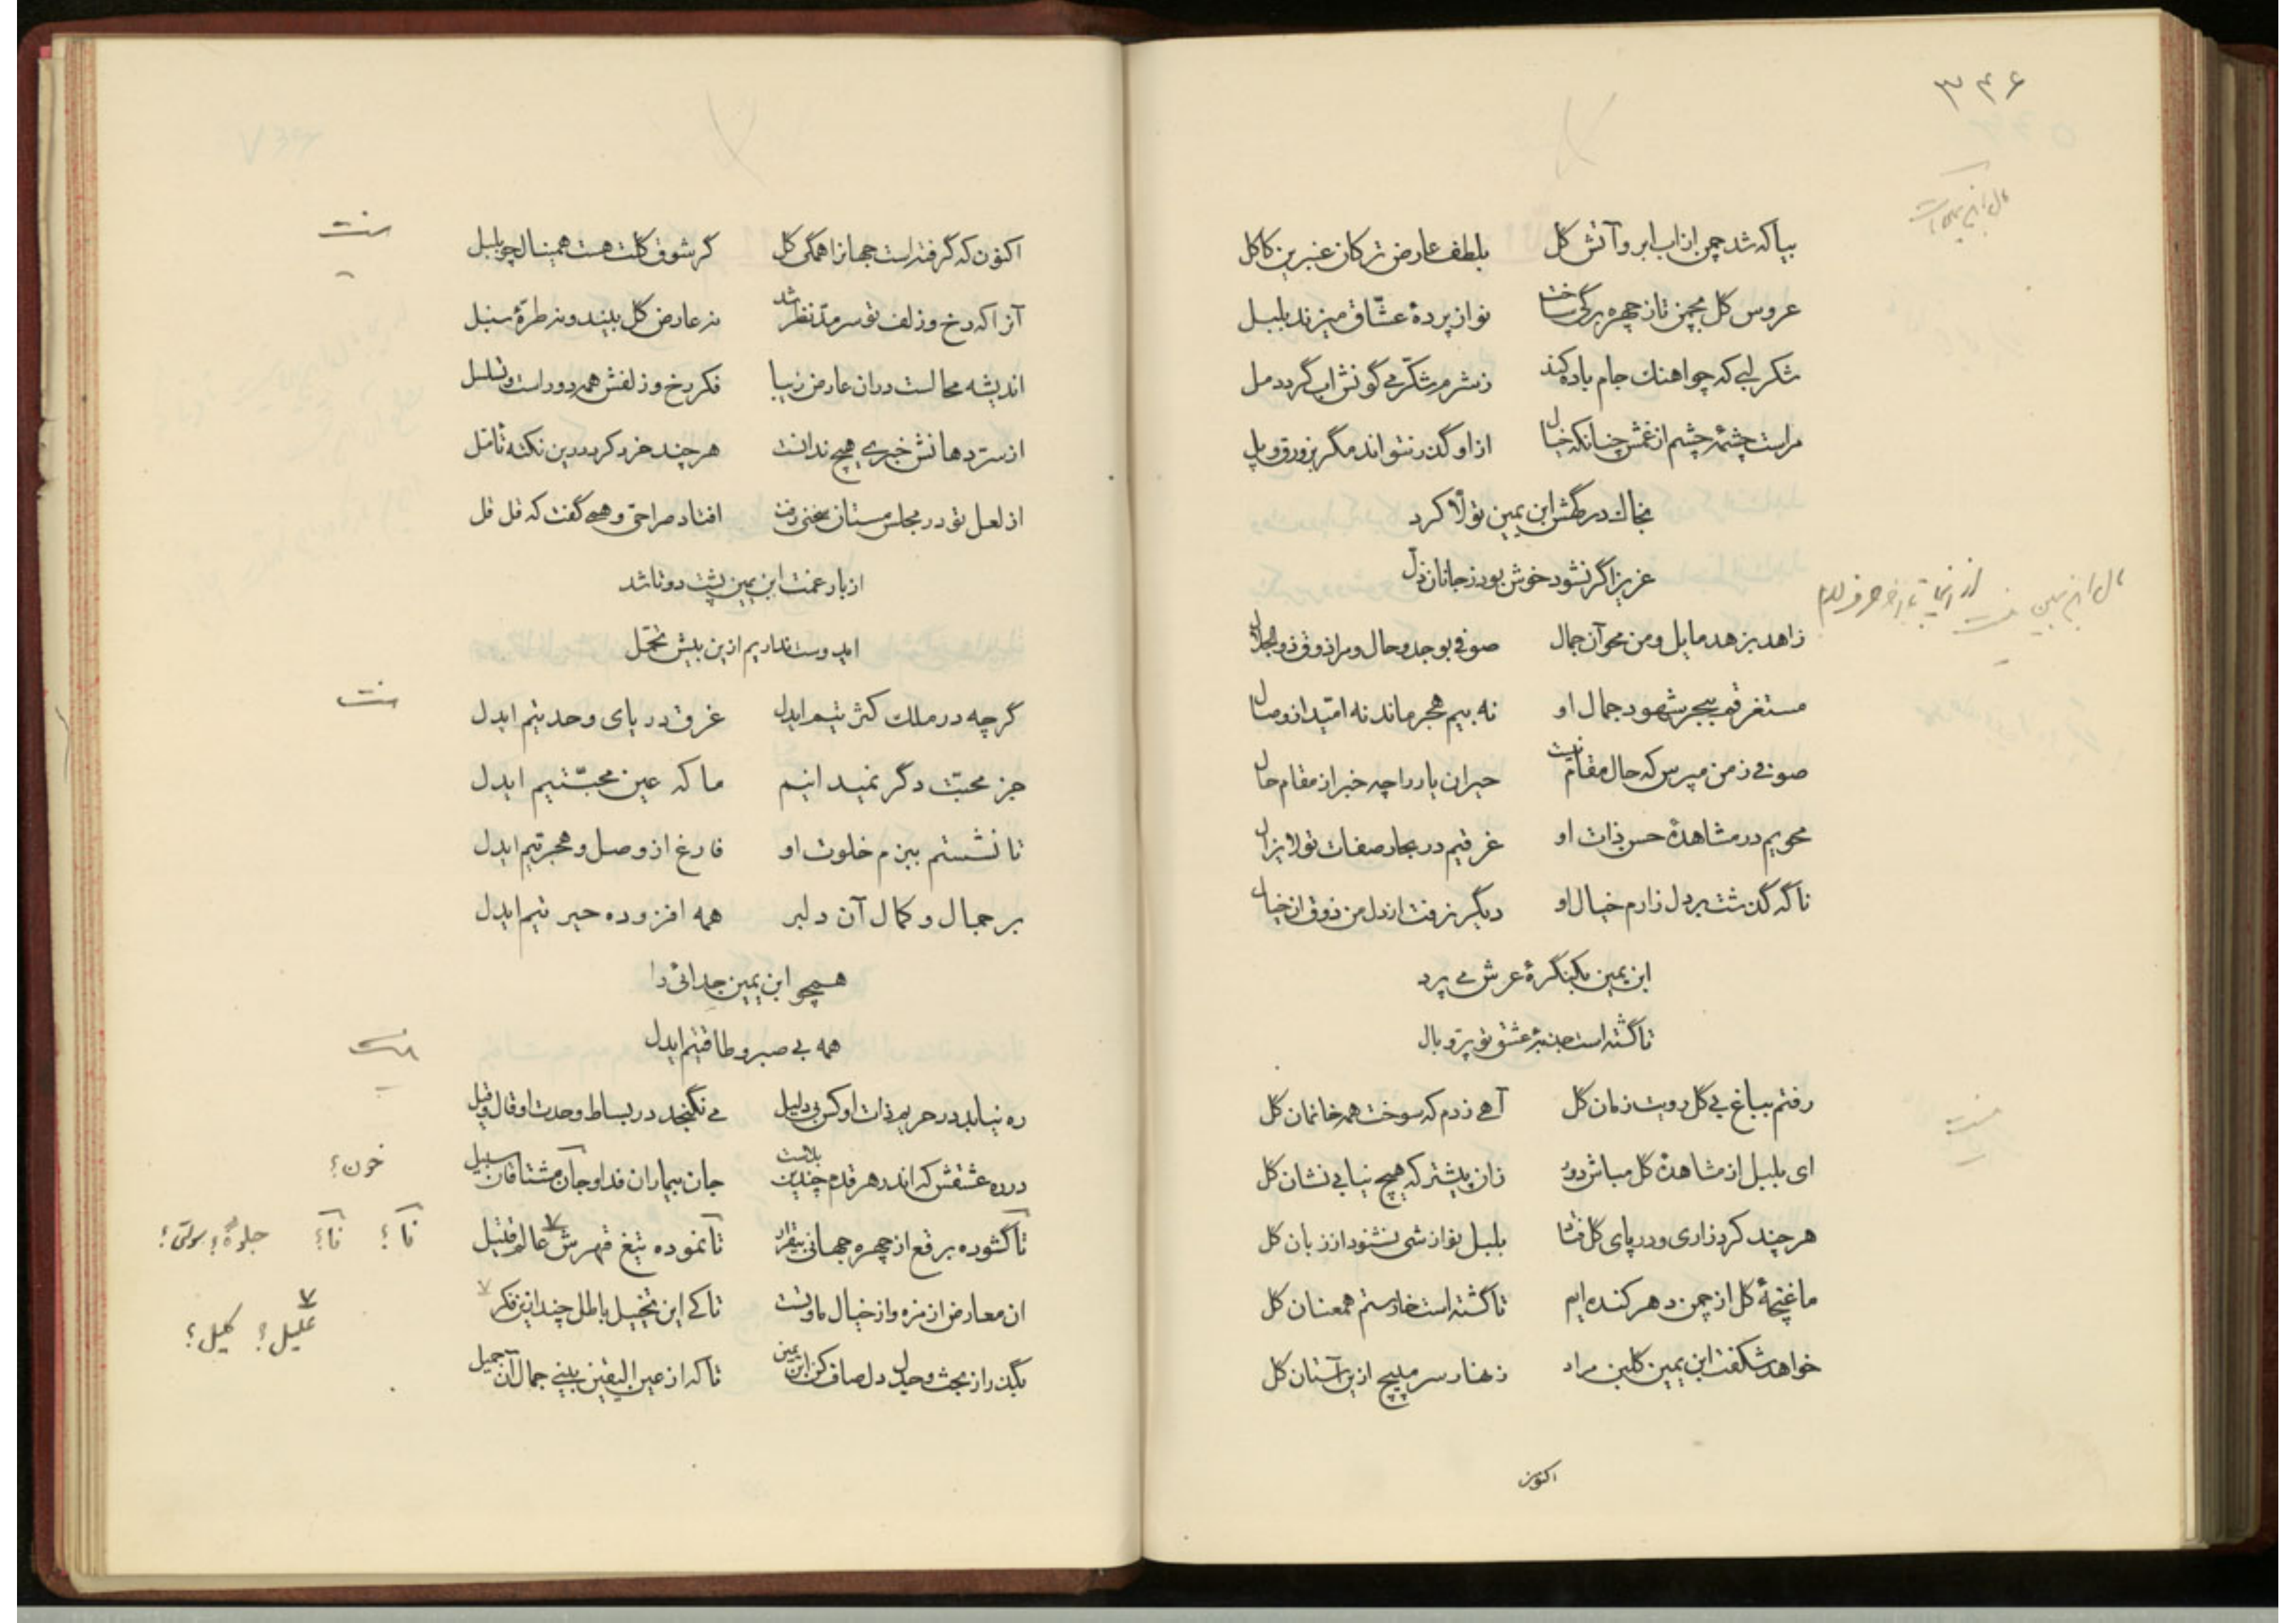 ۳۴۶
بیا که شد چمن از اب ابر و آتش کل بلطف عارض ترکان عنبرین کاکل
عروس کل بچمن تا ز چهره برکی ساخت نوا ز پردهٔ عشّاق میزند بلبل
شکر لبی که چو اهنک جام باده کند ز شرم شکّر می کون شراب گردد مل
مراست چشمهٔ چشم از غمش چنانکه خیال از او گذر نتواند مگر بزورق و پل
بخاک درگهش ابن یمین تولّا کرد
عزیز اگر نشود خوش بود ز جانان ذلّ
زاهد بزهد مایل و من محو آن جمال صوفی بوجد و حال و مرا ذوق ذو الجلال
مستغرقم ببحر شهود جمال او نه بیم هجر ماند نه امّید از وصال
صوفی ز من مپرس که حال مقام چیست حیران یار را چه خبر از مقام حال
محویم در مشاهدهٔ حسن ذات او غرقیم در بحار صفات تو لا یزال
ناگه گذشت بر دل زارم خیال او دیگر نرفت از دل من ذوق ان خیال
ابن یمین بکنگرهٔ عرش می پرد
تا گشته است جذبهٔ عشق تو پرّ و بال
رفتم بباغ بی گل رویت زمان گل آهی زدم که سوخت همه خانمان گل
ای بلبل از مشاهدهٔ گل مباش دور زان پیشتر که هیچ نیابی نشان گل
هر چند کرد زاری و در پای گل فتاد بلبل نوازشی نشنود از زبان گل
ما غنچهٔ گل از چمن دهر کنده ایم تا گشته است خار ستم همعنان گل
خواهد شکفت ابن یمین گلبن مراد زنهار سر مپیچ ازین آستان گل
اکنون
اکنون که گرفته است جهانرا همگی کل گر شوق گلت هست همینال چو بلبل
آنرا که رخ و زلف تو سر مدّ نظر شد نه عارض کل بیند و نه طرّهٔ سنبل
اندیشه محالست دران عارض زیبا فکر رخ و زلفش همه دور است و تسلسل
از سرّ دهانش خبری هیچ ندانست هر چند خرد کرد درین نکته تامّل
از لعل تو در مجلس مستان سخنی رفت افتاد صراحی و همی گفت که قل قل
از بار غمت ابن یمین پشت دوتا شد
ایدوست نداریم ازین بیش تحمّل
گرچه در ملک کثرتیم ایدل غرق دریای وحدتیم ایدل
جز محبّت دگر نمیدانیم ما که عین محبّتیم ایدل
تا نشستم ببزم خلوت او فارغ از وصل و هجرتیم ایدل
بر جمال و کمال آن دلبر همه افزوده حیرتیم ایدل
همچو ابن یمین جدائی را
همه بی صبر و طاقتیم ایدل
ره نیابد در حریم ذات او کس بی دلیل می نگنجد در بساط وحدت او قال و قیل
در ره عشقش که اندر هر قدم چندین بلاست جان بیماران فدا و جان مشتاقان سبیل
خون؟
تا گشوده برقع از چهره جهانی بیقرار تا نموده تیغ قهرش عالم قتیل
نا؟ نا؟ جلوهٔ؟
ان معارض از مزه و از خیال ماورست تا کی این تخییل باطل چند ازین فکر
علیل؟ کلیل؟
بگذر از بحث و جدل دل صاف کن ابن یمین تا که از عین الیقین بینی جمال آن جمیل